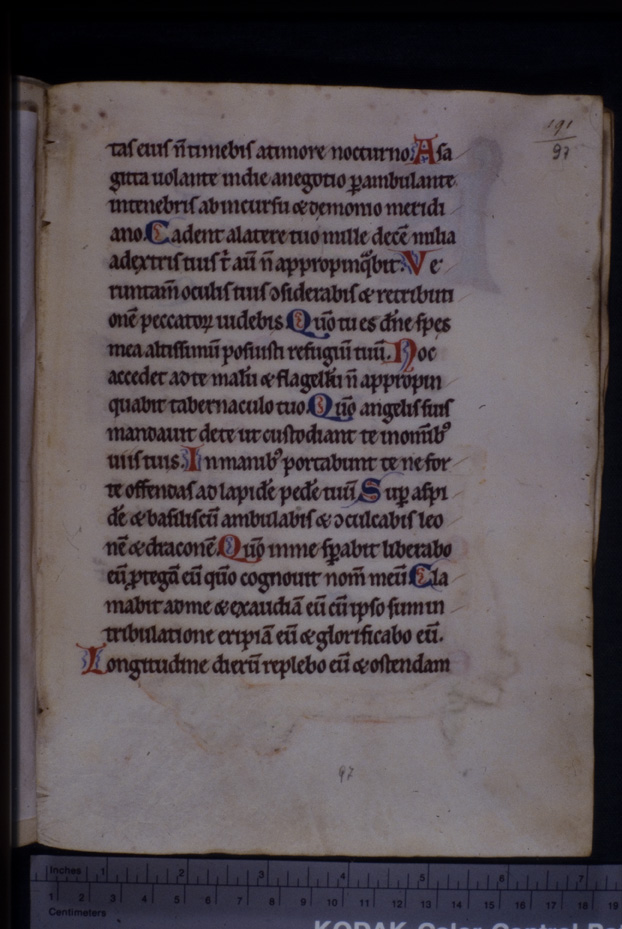 191
97
tas eius n̄ timebis a timore nocturno. A sa
gitta uolante in die a negotio ꝑambulante
in tenebris ab incursu & demonio meridi
ano. Cadent a latere tuo mille & decē milia
a dextris tuis t̄ aū n̄ appropinq̄bit. Ve
runtam̄ oculis tuis ɔsiderabis & retributi
onē peccatoꝝ uidebis Qūo tu es dn̄e spes
mea altissimū posuisti refugiū tuū. Non
accedet ad te malū & flagellū n̄ appropin
quabit tabernaculo tuo. Qūo angelis suis
mandauit de te ut custodiant te in om̄ibꝰ
uiis tuis. In manibꝰ portabunt te ne for
te offendas ad lapidē pedē tuū. Suꝑ aspi
dē & basiliscū ambulabis & ɔculcabis leo
nē & draconē. Qūo in me sꝑabit liberabo
eū ꝓtegā eū qūo cognouit nom̄ meū. Cla
mabit ad me & exaudiā eū cū ipso sum in
tribulatione eripiā eū & glorificabo eū.
Longitudine dierū replebo eū & ostendam
97
Inches 1 2 3 4 5 6 7
1 2 3 4 5 6 7 8 9 10 11 12 13 14 15 16 17 18 19
Centimeters
KODAK Color Control